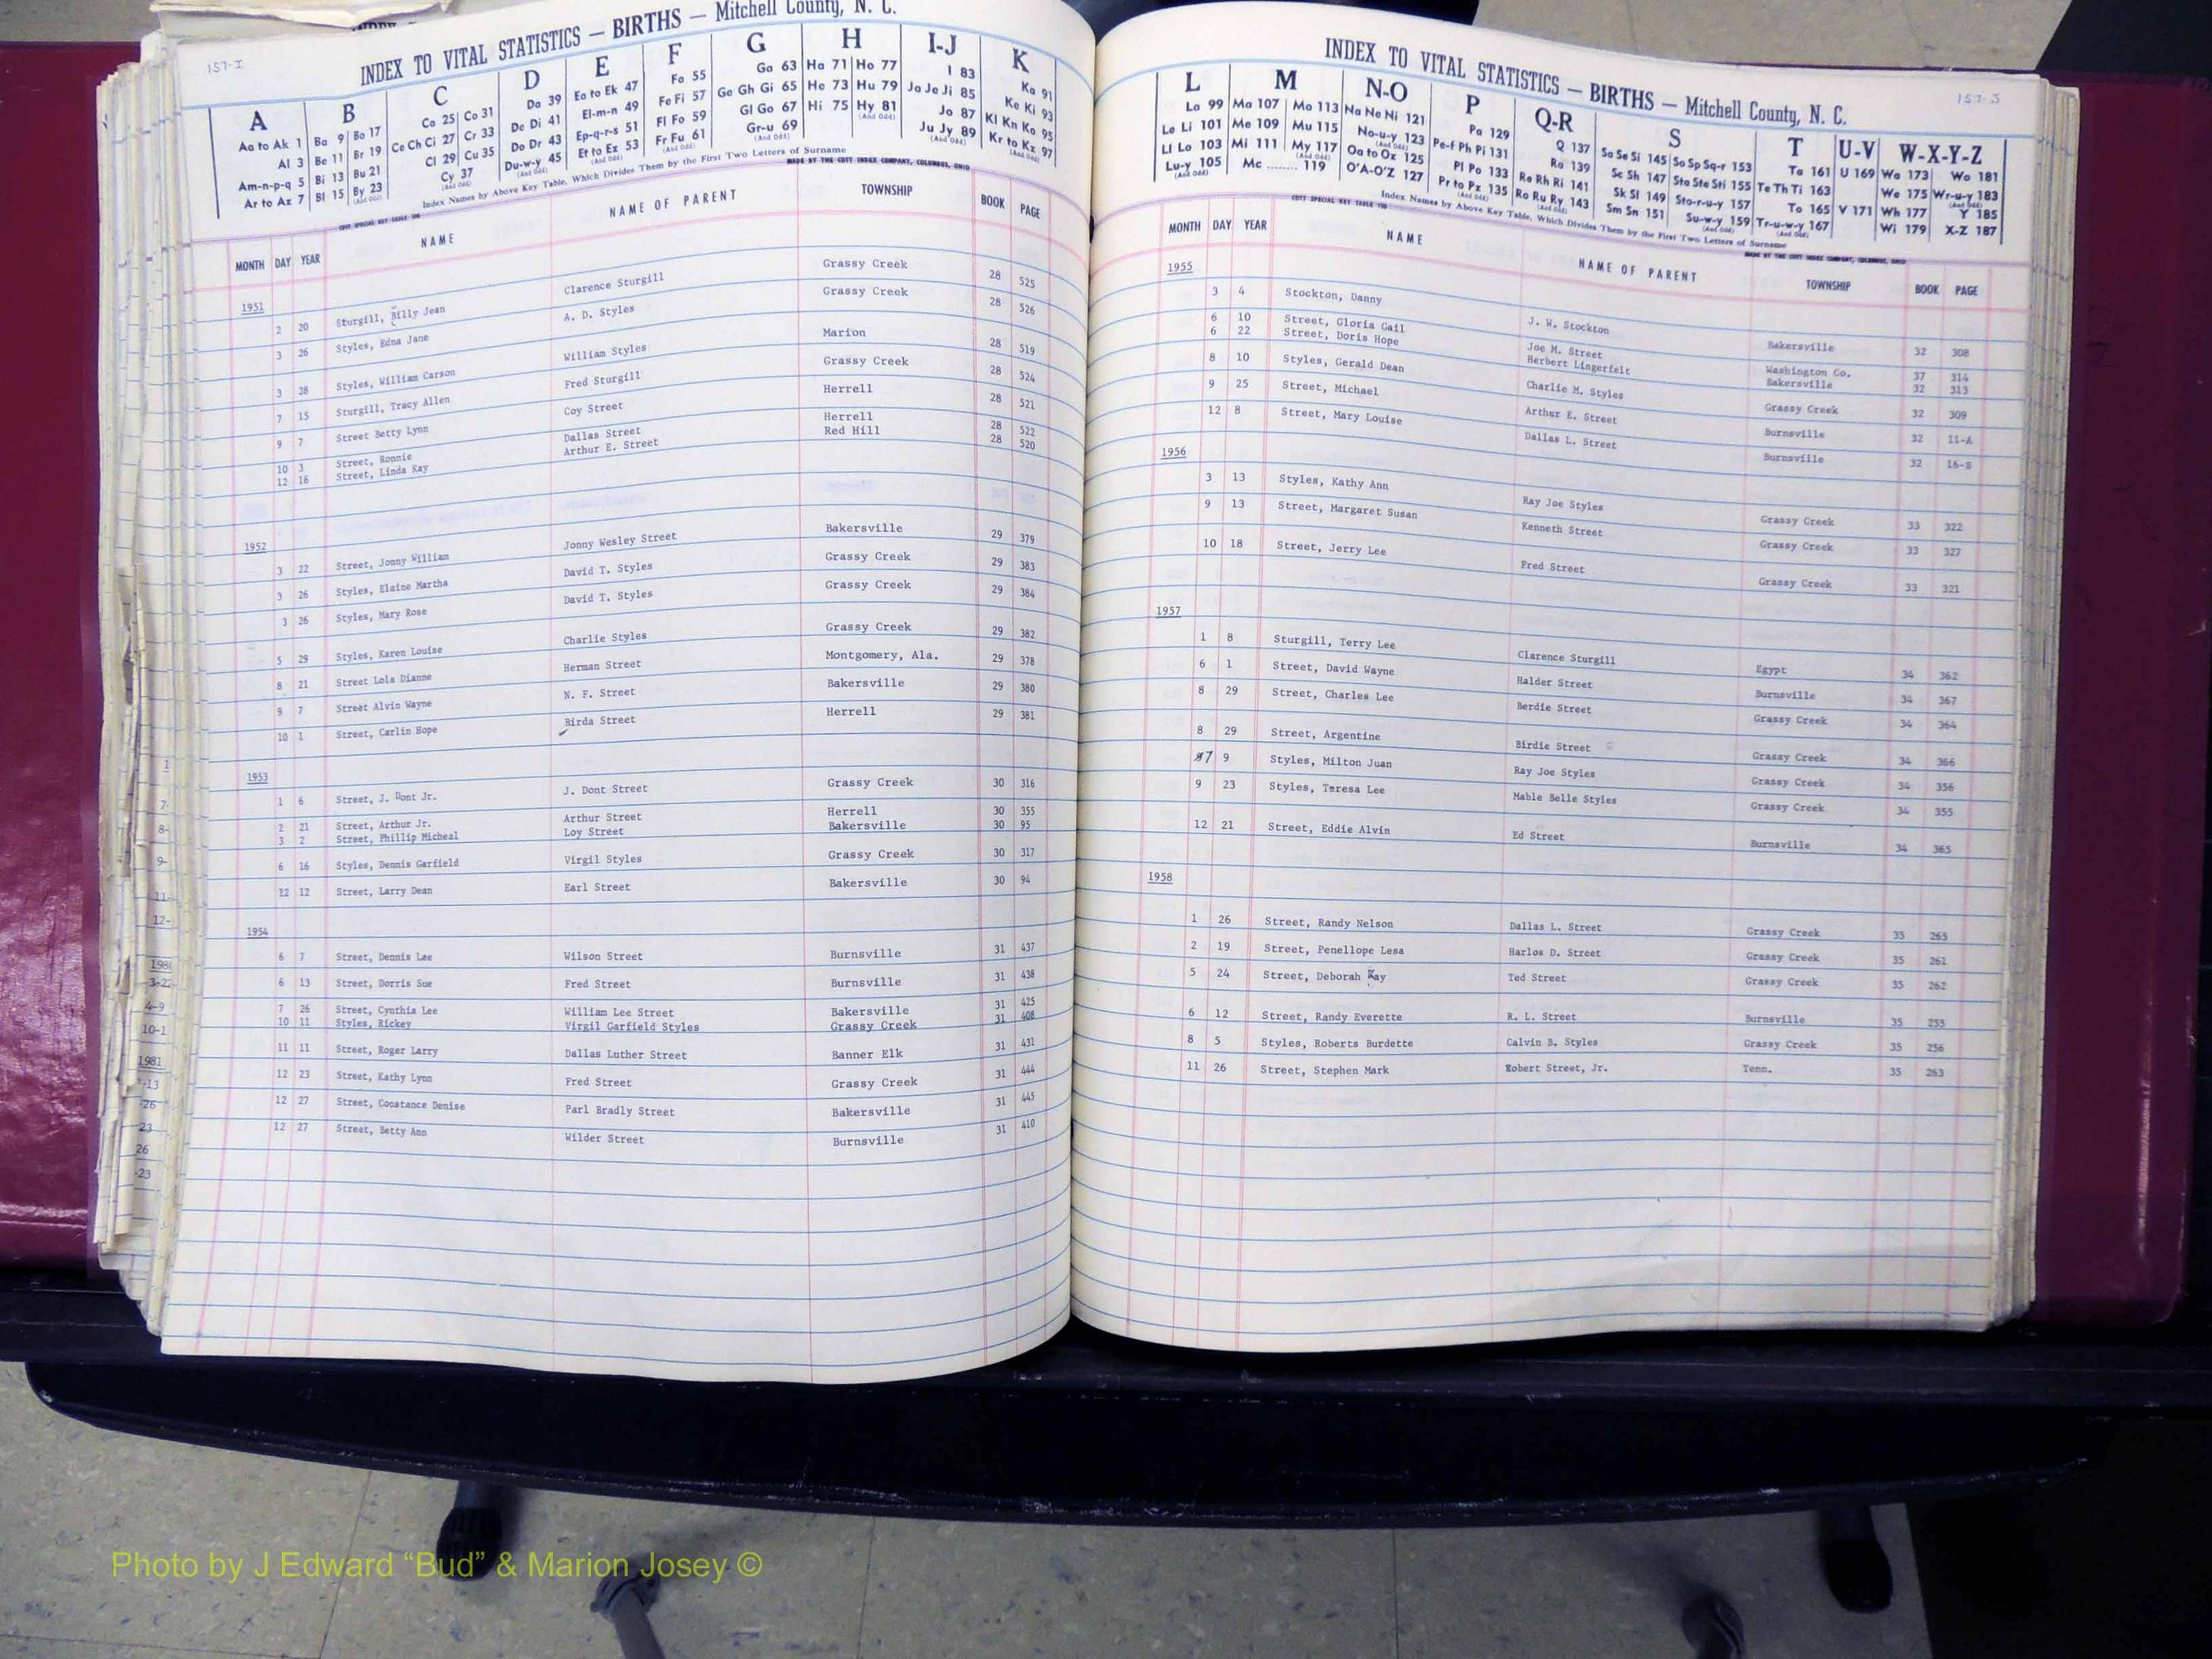 157-I
INDEX TO VITAL STATISTICS — BIRTHS — Mitchell County, N. C.
A B C D E F G H I-J K
Aa to Ak 1 Ba 9 Bo 17 Ca 25 Co 31 Da 39 Ea to Ek 47 Fa 55 Ga 63 Ha 71 Ho 77 I 83 Ka 91
Al 3 Be 11 Br 19 Ce Ch Ci 27 Cr 33 De Di 41 El-m-n 49 Fe Fi 57 Ge Gh Gi 65 He 73 Hu 79 Ja Je Ji 85 Ke Ki 93
Am-n-p-q 5 Bi 13 Bu 21 Cl 29 Cu 35 Do Dr 43 Ep-q-r-s 51 Fl Fo 59 Gl Go 67 Hi 75 Hy 81 Jo 87 Kl Kn Ko 95
Ar to Az 7 Bl 15 By 23 Cy 37 Du-w-y 45 Et to Ez 53 Fr Fu 61 Gr-u 69 Ju Jy 89 Kr to Kz 97
Index Names by Above Key Table, Which Divides Them by the First Two Letters of Surname
MADE BY THE COTT INDEX COMPANY, COLUMBUS, OHIO
MONTH DAY YEAR NAME NAME OF PARENT TOWNSHIP BOOK PAGE
1951
2 20 Sturgill, Billy Jean Clarence Sturgill Grassy Creek 28 525
3 26 Styles, Edna Jane A. D. Styles Grassy Creek 28 526
3 28 Styles, William Carson William Styles Marion 28 519
7 15 Sturgill, Tracy Allen Fred Sturgill Grassy Creek 28 524
9 7 Street Betty Lynn Coy Street Herrell 28 521
10 3 Street, Ronnie Dallas Street Herrell 28 522
12 16 Street, Linda Kay Arthur E. Street Red Hill 28 520
1952
3 22 Street, Jonny William Jonny Wesley Street Bakersville 29 379
3 26 Styles, Elaine Martha David T. Styles Grassy Creek 29 383
3 26 Styles, Mary Rose David T. Styles Grassy Creek 29 384
5 29 Styles, Karen Louise Charlie Styles Grassy Creek 29 382
8 21 Street Lola Dianne Herman Street Montgomery, Ala. 29 378
9 7 Street Alvin Wayne N. F. Street Bakersville 29 380
10 1 Street, Carlin Hope Birda Street Herrell 29 381
1953
1 6 Street, J. Dont Jr. J. Dont Street Grassy Creek 30 316
2 21 Street, Arthur Jr. Arthur Street Herrell 30 355
3 2 Street, Phillip Micheal Loy Street Bakersville 30 95
6 16 Styles, Dennis Garfield Virgil Styles Grassy Creek 30 317
12 12 Street, Larry Dean Earl Street Bakersville 30 94
1954
6 7 Street, Dennis Lee Wilson Street Burnsville 31 437
6 13 Street, Dorris Sue Fred Street Burnsville 31 438
7 26 Street, Cynthia Lee William Lee Street Bakersville 31 425
10 11 Styles, Rickey Virgil Garfield Styles Grassy Creek 31 408
11 11 Street, Roger Larry Dallas Luther Street Banner Elk 31 431
12 23 Street, Kathy Lynn Fred Street Grassy Creek 31 444
12 27 Street, Constance Denise Parl Bradly Street Bakersville 31 445
12 27 Street, Betty Ann Wilder Street Burnsville 31 410
157-J
INDEX TO VITAL STATISTICS — BIRTHS — Mitchell County, N. C.
L M N-O P Q-R S T U-V W-X-Y-Z
La 99 Ma 107 Mo 113 Na Ne Ni 121 Pa 129 Q 137 Sa Se Si 145 So Sp Sq-r 153 Ta 161 U 169 Wa 173 Wo 181
Le Li 101 Me 109 Mu 115 No-u-y 123 Pe-f Ph Pi 131 Ra 139 Sc Sh 147 Sta Ste Sti 155 Te Th Ti 163 We 175 Wr-u-y 183
Ll Lo 103 Mi 111 My 117 Oa to Oz 125 Pl Po 133 Re Rh Ri 141 Sk Sl 149 Sto-r-u-y 157 To 165 V 171 Wh 177 Y 185
Lu-y 105 Mc 119 O'A-O'Z 127 Pr to Pz 135 Ro Ru Ry 143 Sm Sn 151 Su-w-y 159 Tr-u-w-y 167 Wi 179 X-Z 187
Index Names by Above Key Table, Which Divides Them by the First Two Letters of Surname
MADE BY THE COTT INDEX COMPANY, COLUMBUS, OHIO
MONTH DAY YEAR NAME NAME OF PARENT TOWNSHIP BOOK PAGE
1955
3 4 Stockton, Danny J. W. Stockton Bakersville 32 308
6 10 Street, Gloria Gail Joe M. Street Washington Co. 37 314
6 22 Street, Doris Hope Herbert Lingerfelt Bakersville 32 313
8 10 Styles, Gerald Dean Charlie M. Styles Grassy Creek 32 309
9 25 Street, Michael Arthur E. Street Burnsville 32 11-A
12 8 Street, Mary Louise Dallas L. Street Burnsville 32 16-B
1956
3 13 Styles, Kathy Ann Ray Joe Styles Grassy Creek 33 322
9 13 Street, Margaret Susan Kenneth Street Grassy Creek 33 327
10 18 Street, Jerry Lee Fred Street Grassy Creek 33 321
1957
1 8 Sturgill, Terry Lee Clarence Sturgill Egypt 34 362
6 1 Street, David Wayne Halder Street Burnsville 34 367
8 29 Street, Charles Lee Berdie Street Grassy Creek 34 364
8 29 Street, Argentine Birdie Street Grassy Creek 34 366
7 9 Styles, Milton Juan Ray Joe Styles Grassy Creek 34 356
9 23 Styles, Teresa Lee Mable Belle Styles Grassy Creek 34 355
12 21 Street, Eddie Alvin Ed Street Burnsville 34 365
1958
1 26 Street, Randy Nelson Dallas L. Street Grassy Creek 35 265
2 19 Street, Penellope Lesa Harlos D. Street Grassy Creek 35 261
5 24 Street, Deborah Kay Ted Street Grassy Creek 35 262
6 12 Street, Randy Everette R. L. Street Burnsville 35 255
8 5 Styles, Roberts Burdette Calvin B. Styles Grassy Creek 35 256
11 26 Street, Stephen Mark Robert Street, Jr. Tenn. 35 263
Photo by J Edward “Bud” & Marion Josey ©